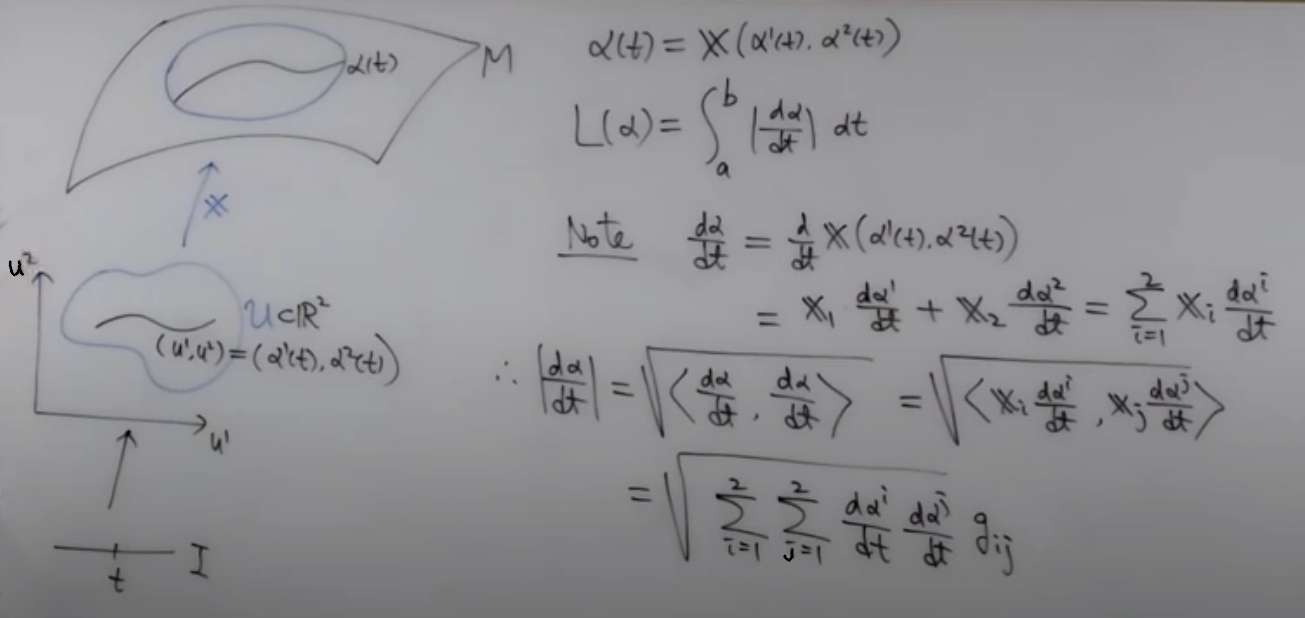 α(t)
M
𝕏
u²
U⊂ℝ²
(u¹,u²)=(α¹(t), α²(t))
u¹
t
I
α(t) = 𝕏(α¹(t), α²(t))
L(α) = ∫ₐᵇ |dα/dt| dt
Note dα/dt = d/dt 𝕏(α¹(t), α²(t))
= 𝕏₁ dα¹/dt + 𝕏₂ dα²/dt = ∑_{i=1}^{2} 𝕏ᵢ dαⁱ/dt
∴ |dα/dt| = √⟨dα/dt, dα/dt⟩ = √⟨𝕏ᵢ dαⁱ/dt, 𝕏ⱼ dαʲ/dt⟩
= √(∑_{i=1}^{2} ∑_{j=1}^{2} dαⁱ/dt dαʲ/dt gᵢⱼ)